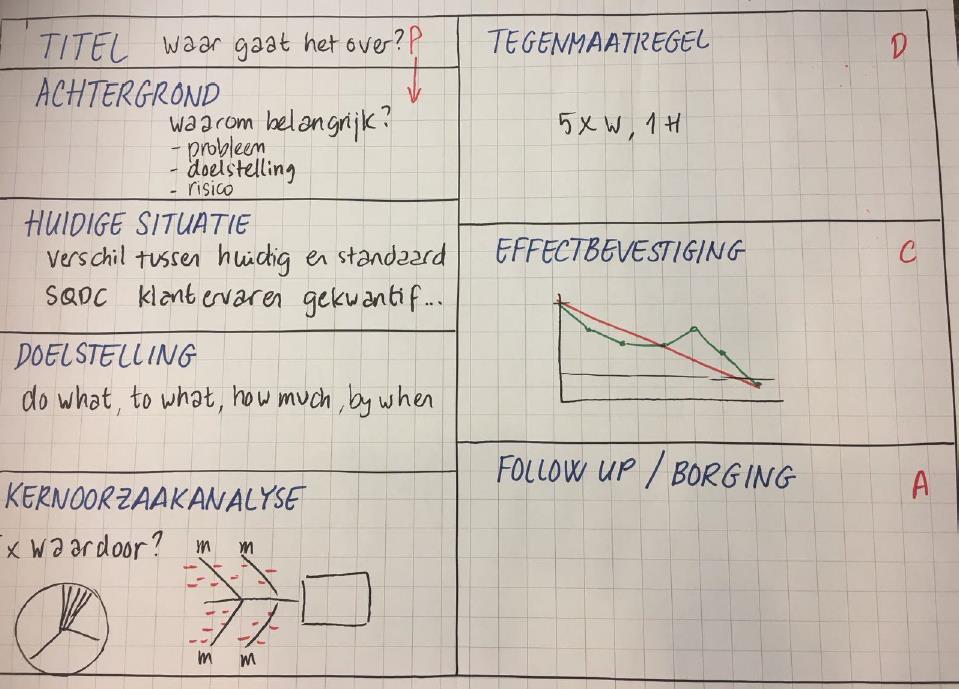 TITEL waar gaat het over? P
ACHTERGROND
waarom belangrijk?
- probleem
- doelstelling
- risico
HUIDIGE SITUATIE
verschil tussen huidig en standaard
SQDC klant ervaren gekwantif...
DOELSTELLING
do what, to what, how much, by when
KERNOORZAAKANALYSE
x waardoor?
m m
m m
TEGENMAATREGEL D
5 x W, 1 H
EFFECTBEVESTIGING C
FOLLOW UP / BORGING A